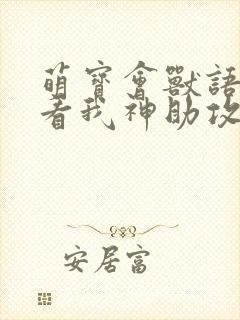 萌寶會獸語
看我神助攻
安居富